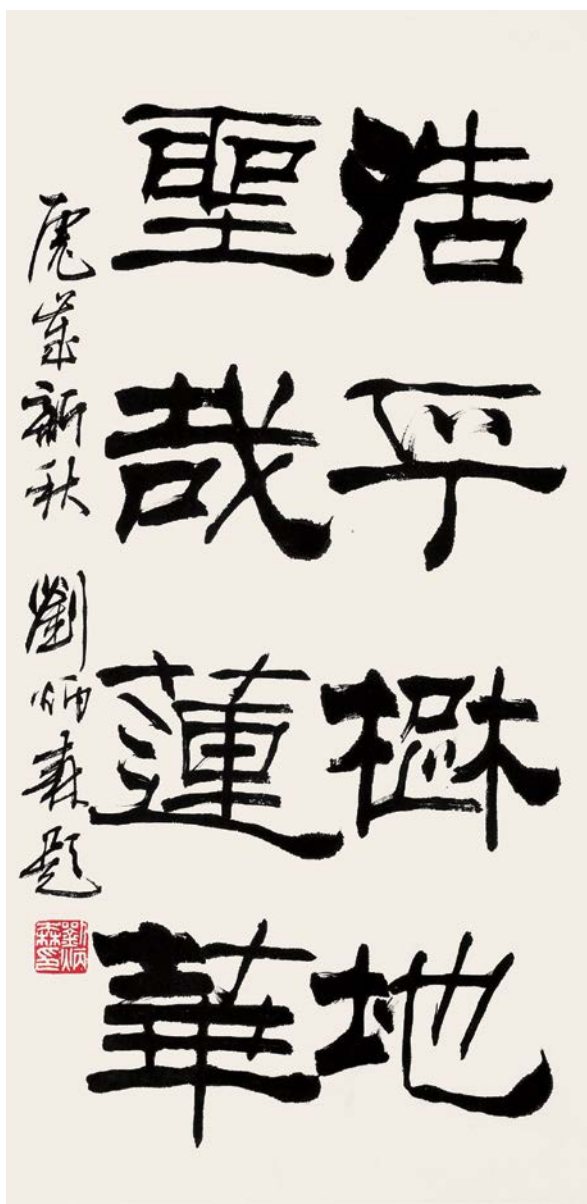 浩乎地
聖哉蓮華
虎歲新秋 劉炳森題
劉炳森印